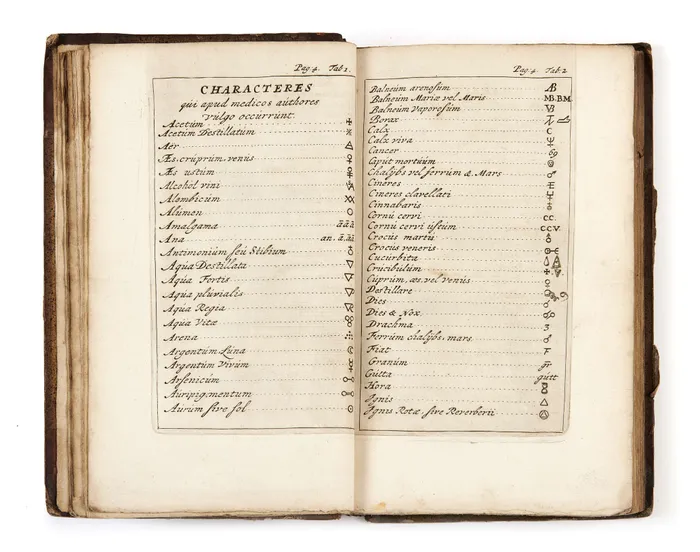 Pag. 4. Tab. 1.
CHARACTERES
qui apud medicos authores
vulgo occurrunt.
Acetum
Acetum Destillatum
Aer
Æs. cruprum. venus
Æs ustum
Alcohol vini
Alembicum
Alumen
Amalgama āāā
Ana an. ā. āā
Antimonium seu Stibium
Aqua Destillata
Aqua Fortis
Aqua pluvialis
Aqua Regia
Aqua Vitæ
Arena
Argentum Luna
Argentum Vivum
Arsenicum
Auripigmentum
Aurum sive sol
Pag. 4. Tab. 2.
Balneum arenosum AB
Balneum Mariæ vel Maris MB. B.M.
Balneum Vaporosum VB
Borax
Calx C
Calx viva
Cancer 69
Caput mortuum
Chalybs vel ferrum & Mars ♂
Cineres
Cineres clavellati
Cinnabaris
Cornu cervi CC.
Cornu cervi ustum CCV.
Crocus martis
Crocus veneris
Cucurbita
Crucibulum
Cuprum, æs vel venus ♀
Destillare
Dies
Dies & Nox
Drachma ʒ
Ferrum chalybs. mars ♂
Fiat F
Granum gr
Gutta gutt
Hora
Ignis △
Ignis Rotæ sive Reverberii